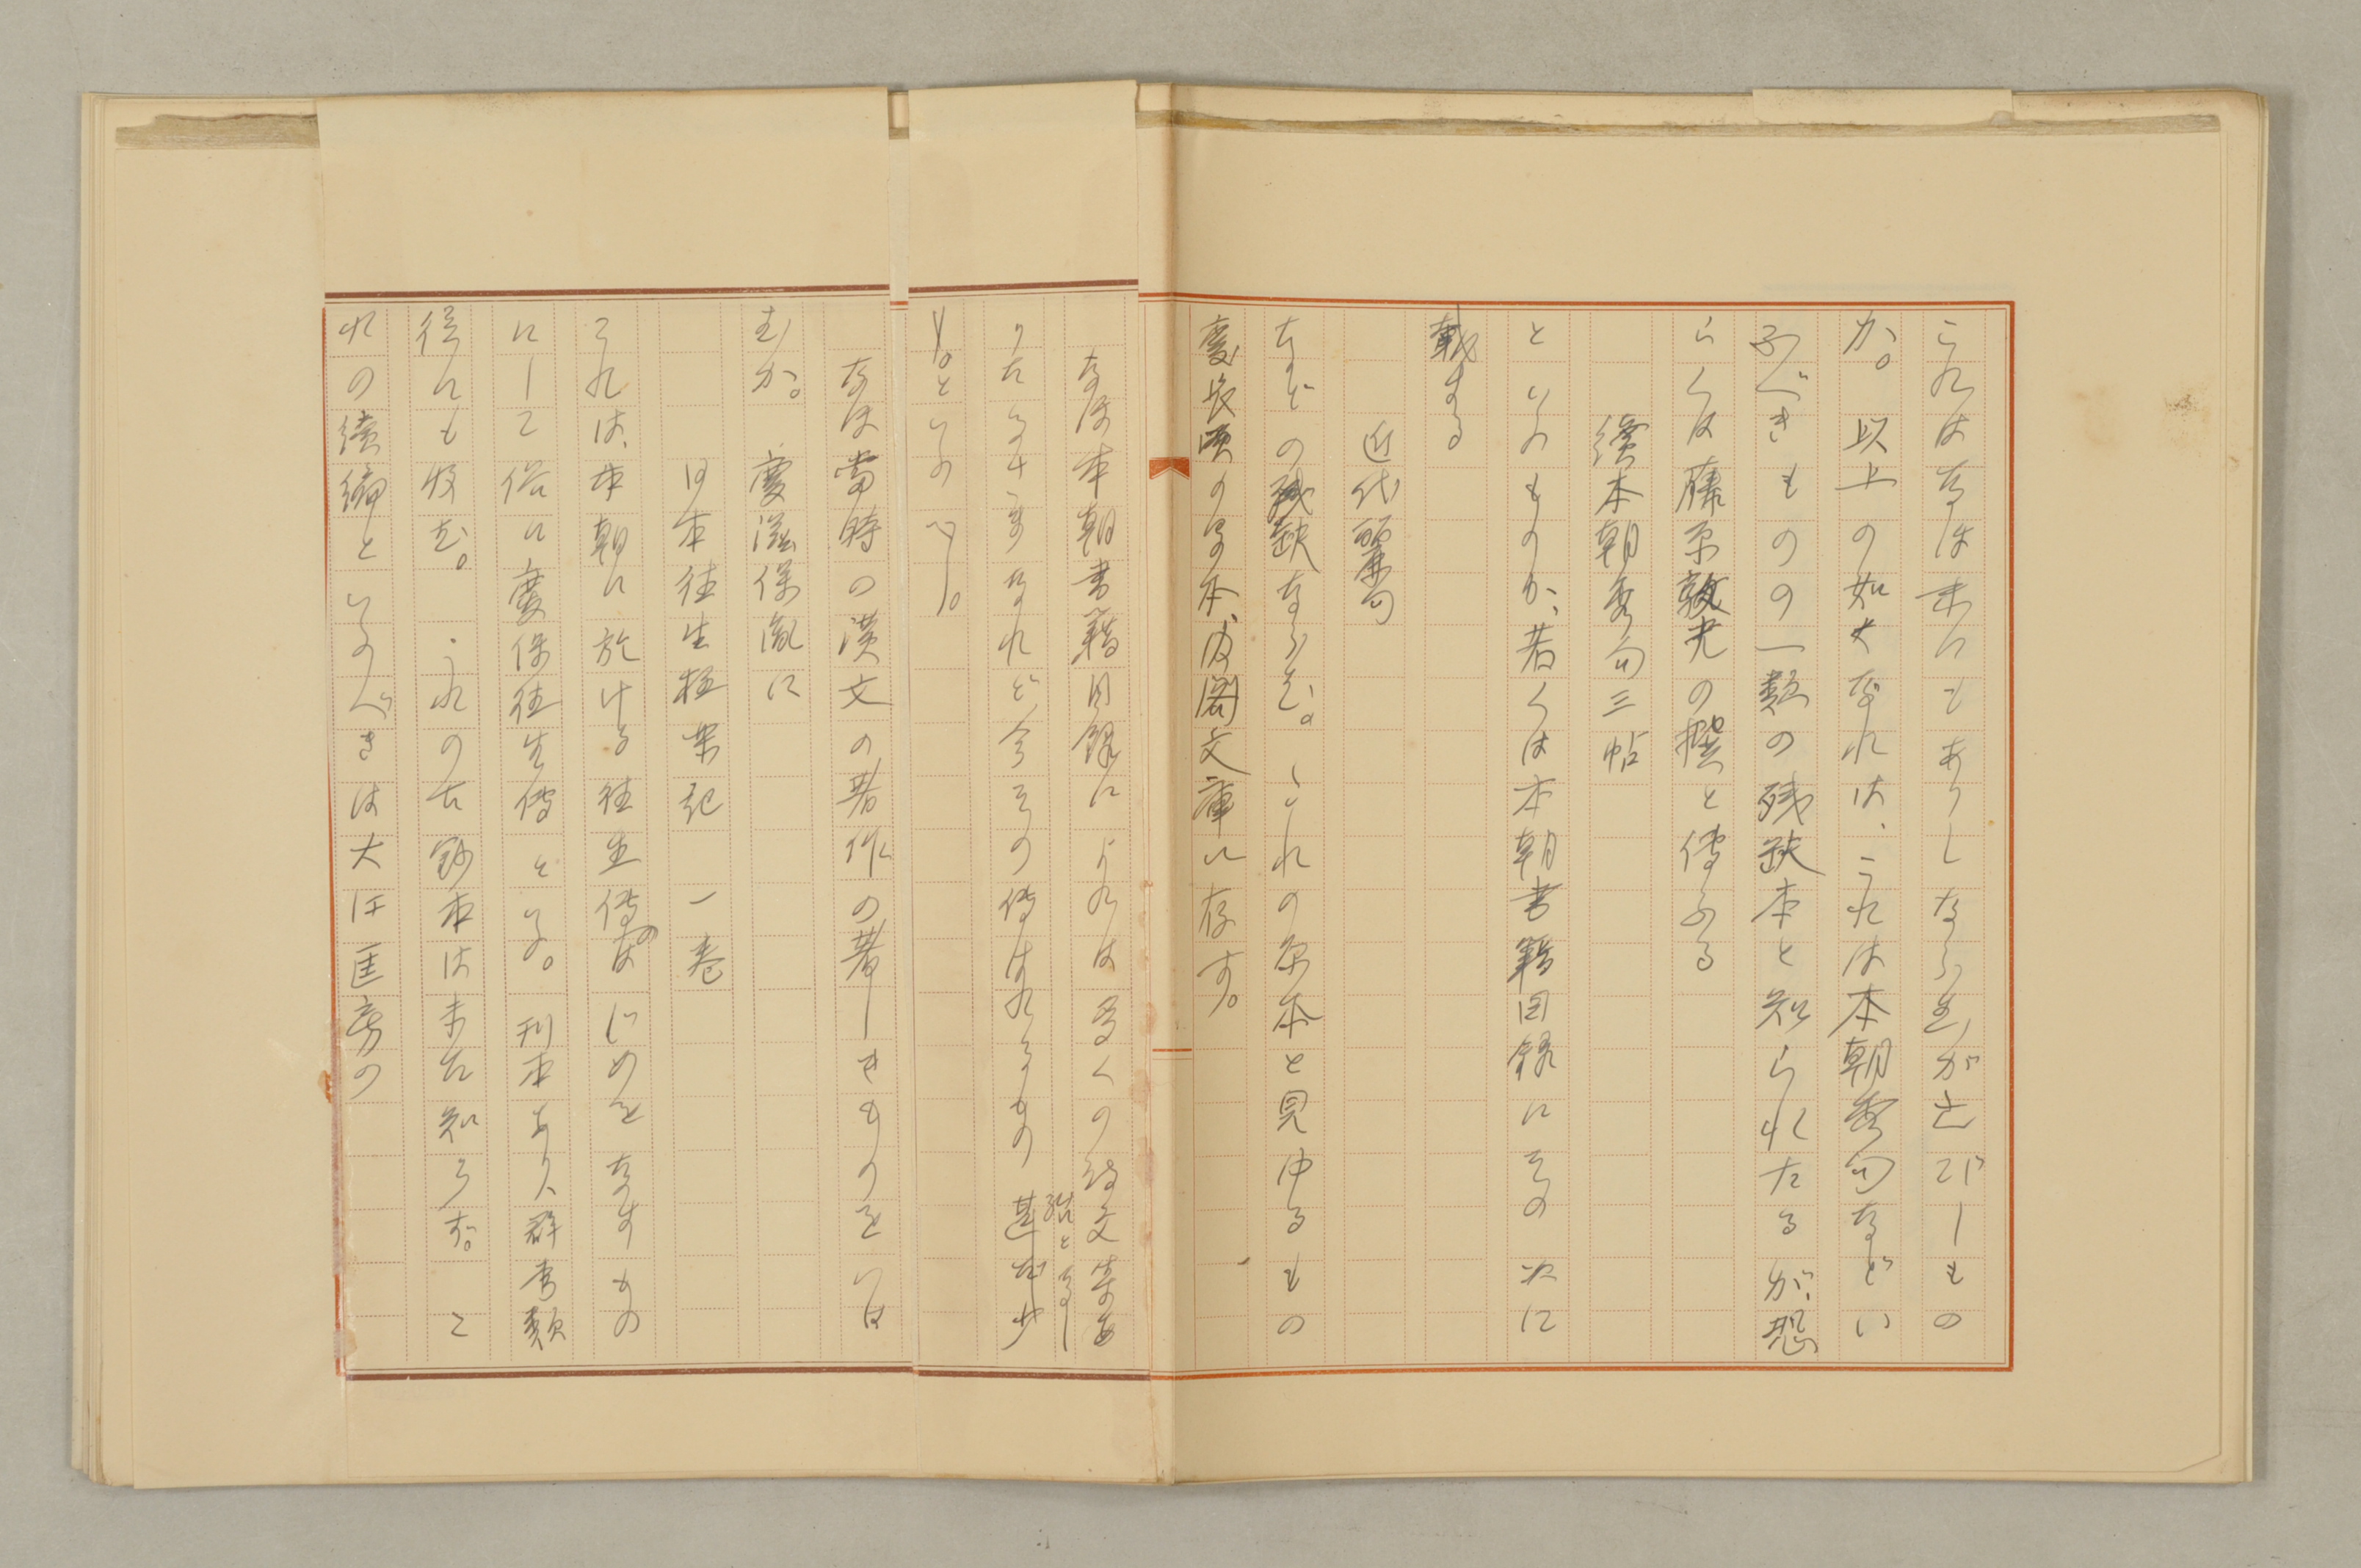 これはなほ未にもありしならむが亡びしもの
か。以上の如くなれは、これは本朝秀句などい
ふべきものの一類の残缺本と知られたるが、恐
らくは藤原敦光の撰と傳ふる
續本朝秀句三帖
といふものか、若くは本朝書籍目録にその次に
載する
近代麗句
などの残缺ならむ。これの原本と見ゆるもの
慶長頃の写本、内閣文庫に存す。
なほ本朝書籍目録によれは多くの詩文集あ
りたるさまなれど今その傳はれるもの殆となし
甚だ少
し。といふべし。
なほ當時の漢文の著作の著しきものをいは
むか。慶滋保胤に
日本往生極樂記 一巻
これは、本朝に於ける往生傳のはじめをなすもの
にして俗に慶保往生傳といふ。刊本あり、群書類
從にも收む。これの古鈔本は未だ知らず。こ
れの續編といふべきは大江匡房の